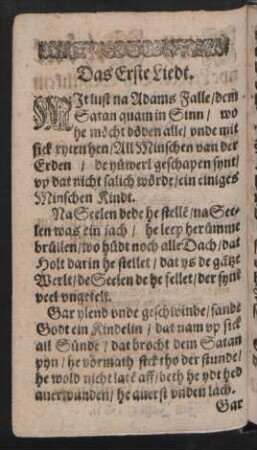 Das Erste Liedt.
MIt lust na Adams Falle / dem
Satan quam in Sinn / wo
he möcht döden alle / vnde mit
sick ryten hen / All Minschen van der
Erden / de nüwerl geschapen synt /
vp dat nicht salich wörde / ein einiges
Minschen Kindt.
Na Seelen dede he stellē / na See-
len was ein jach / he leep herümme
brüllen / wo hüdt noch alle Dach / dat
Holt darin he stellet / dat ys de gātze
Werlt / de Seelen de he fellet / der synt
veel vngetelt.
Gar ylend vnde geschwinde / sandt
Godt ein Kindelin / dat nam vp sick
all Sünde / dat brocht dem Satan
pyn / he vörmath sick tho der stunde /
he wold nicht latē aff / beth he ydt hed
auerwunden / he auerst vnden lach.
Gar